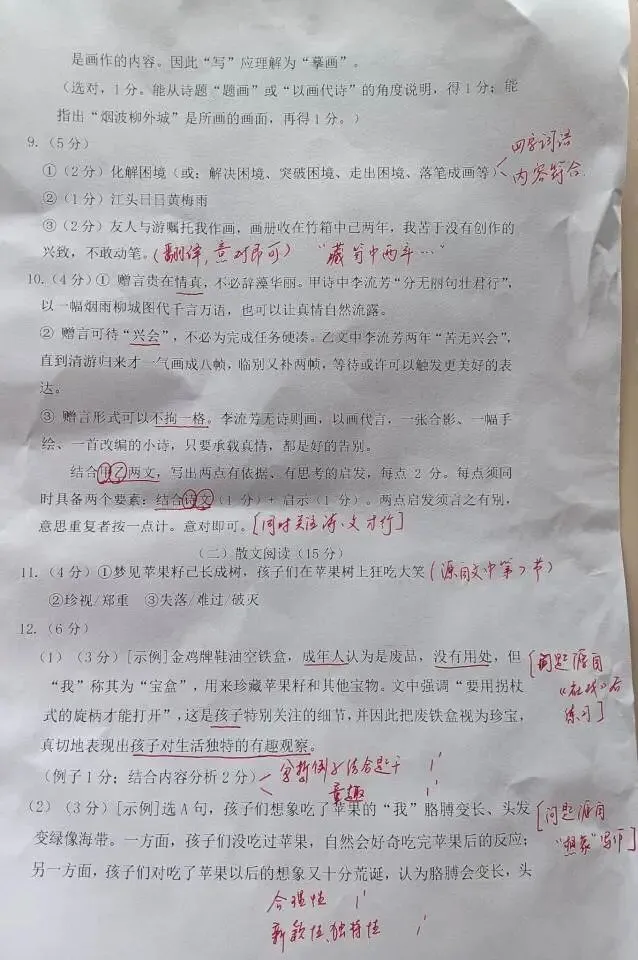 是画作的内容。因此“写”应理解为“摹画”。
(选对,1分。能从诗题“题画”或“以画代诗”的角度说明,得1分;能
指出“烟波柳外城”是所画的画面,再得1分。)
9.(5分)
四字词语
①(2分)化解困境(或:解决困境、突破困境、走出困境、落笔成画等)
内容符合
②(1分)江头日日黄梅雨
③(2分)友人与游嘱托我作画,画册收在竹箱中已两年,我苦于没有创作的
兴致,不敢动笔。(翻译,意对即可) “藏笥中两年…”
10.(4分)① 赠言贵在情真,不必辞藻华丽。甲诗中李流芳“分无丽句壮君行”,
以一幅烟雨柳城图代千言万语,也可以让真情自然流露。
② 赠言可待“兴会”,不必为完成任务硬凑。乙文中李流芳两年“苦无兴会”,
直到清游归来才一气画成八帧,临别又补两帧,等待或许可以触发更美好的表
达。
③ 赠言形式可以不拘一格。李流芳无诗则画,以画代言,一张合影、一幅手
绘、一首改编的小诗,只要承载真情,都是好的告别。
结合甲乙两文,写出两点有依据、有思考的启发,每点 2 分。每点须同
时具备两个要素:结合诗文(1分)+ 启示(1分)。两点启发须言之有别,
意思重复者按一点计。意对即可。[同时关注诗、文才行]
(二)散文阅读(15分)
11.(4分)①梦见苹果籽已长成树,孩子们在苹果树上狂吃大笑(源自文中第7节)
②珍视/郑重 ③失落/难过/破灭
12.(6分)
(1)(3分)[示例]金鸡牌鞋油空铁盒,成年人认为是废品,没有用处,但
[问题源自
“我”称其为“宝盒”,用来珍藏苹果籽和其他宝物。文中强调“要用拐杖
后
式的旋柄才能打开”,这是孩子特别关注的细节,并因此把废铁盒视为珍宝,
练习]
真切地表现出孩子对生活独特的有趣观察。
(例子1分;结合内容分析2分)
分析例子结合题干 1'
童趣 1'
(2)(3分)[示例]选A句,孩子们想象吃了苹果的“我”胳膊变长、头发
[问题源自
变绿像海带。一方面,孩子们没吃过苹果,自然会好奇吃完苹果后的反应;
“想象”写作]
另一方面,孩子们对吃了苹果以后的想象又十分荒诞,认为胳膊会变长,头
合理性 1'
新颖性、独特性 1'